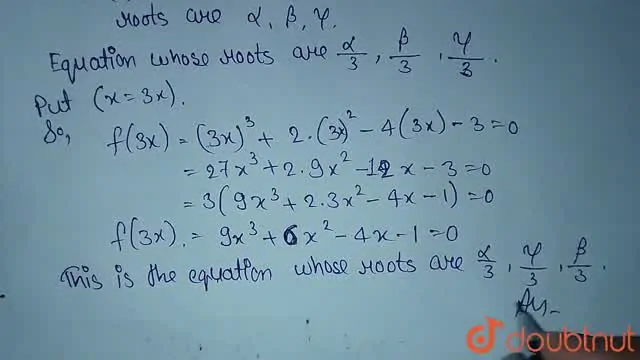 roots are α, β, γ.
Equation whose roots are α/3, β/3, γ/3.
Put (x=3x).
So,
f(3x) = (3x)³ + 2.(3x)² - 4(3x) - 3 = 0
= 27x³ + 2.9x² - 12x - 3 = 0
= 3(9x³ + 2.3x² - 4x - 1) = 0
f(3x). = 9x³ + 6x² - 4x - 1 = 0
This is the equation whose roots are α/3, γ/3, β/3.
doubtnut